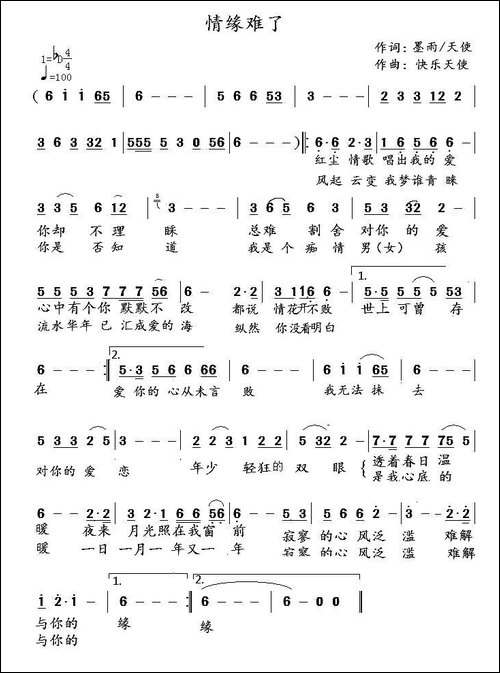 情缘难了
作词：墨雨/天使
作曲：快乐天使
1=♭D 4/4
♩=100
( 6 i i 65 | 6 - - - | 5 6 6 53 | 3 - - - | 2 3 3 12 2 |
3 6 3 32 1 | 555 5 3 0 56 | 6 - - - ) ‖: 6·6 2·3 | 1 6 5 6 6 - |
红尘 情歌 唱出我的 爱
风起 云变 我梦谁青 睐
3 3 5 6 12 | 3 - - - | 3 6 5 6 3 | 5 3 32 2 | 6 - - - |
你却 不 理 睬 总难 割舍 对你的 爱
你是 否 知 道 我是个 痴情 男(女) 孩
5 5 5 3 7 7 7 56 | 6 - - 2·2 | 3 116 6 - | 5·5 5 5 5 53 |
1.
心中有个你 默默不 改 都说 情花开不败 世上可曾 存
流水华年 已 汇成爱的 海 纵然 你没看明白
6 - - - :‖ 5·3 5 6 6 66 | 6 - - - | 6 i i 65 | 6 - - - |
2.
在 爱你的 心从未言 败 我无法 抹 去
5 3 3 2 5 | 3 - - - | 2 2 3 1 2 2 | 5 32 2 - | 7·7 7 7 75 5 |
对你的 爱 恋 年少 轻狂的 双 眼 { 透着春日 温
是我心底 的
6 - - 2·2 | 3·2 1 6 6 6 56 | 6 - - - | 3 3 3 5 3 2 | 3 - - 2·2 |
暖 夜来 月光照在我窗 前 寂寥 的心 风泛 滥 难解
暖 一日 一月一 年又一 年 寂寥 的心 风泛 滥 难解
i 2·i - | 6 - - - :‖ 6 - - - | 6 - 0 0 ‖
1. 2.
与你的 缘 缘
与你的